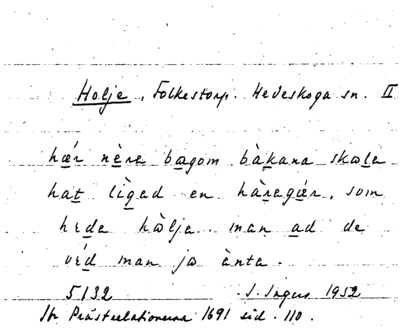 Holje, Folkestorp. Hedeskoga sn. II
hǽr nère bagom bàkana skæla
hat lìged en hàragǽr, som
heda hòlja. man ad de
véd man ja ànta.
5132 S. Ingers 1952
Jfr Prästrelationerna 1691 sid. 110.